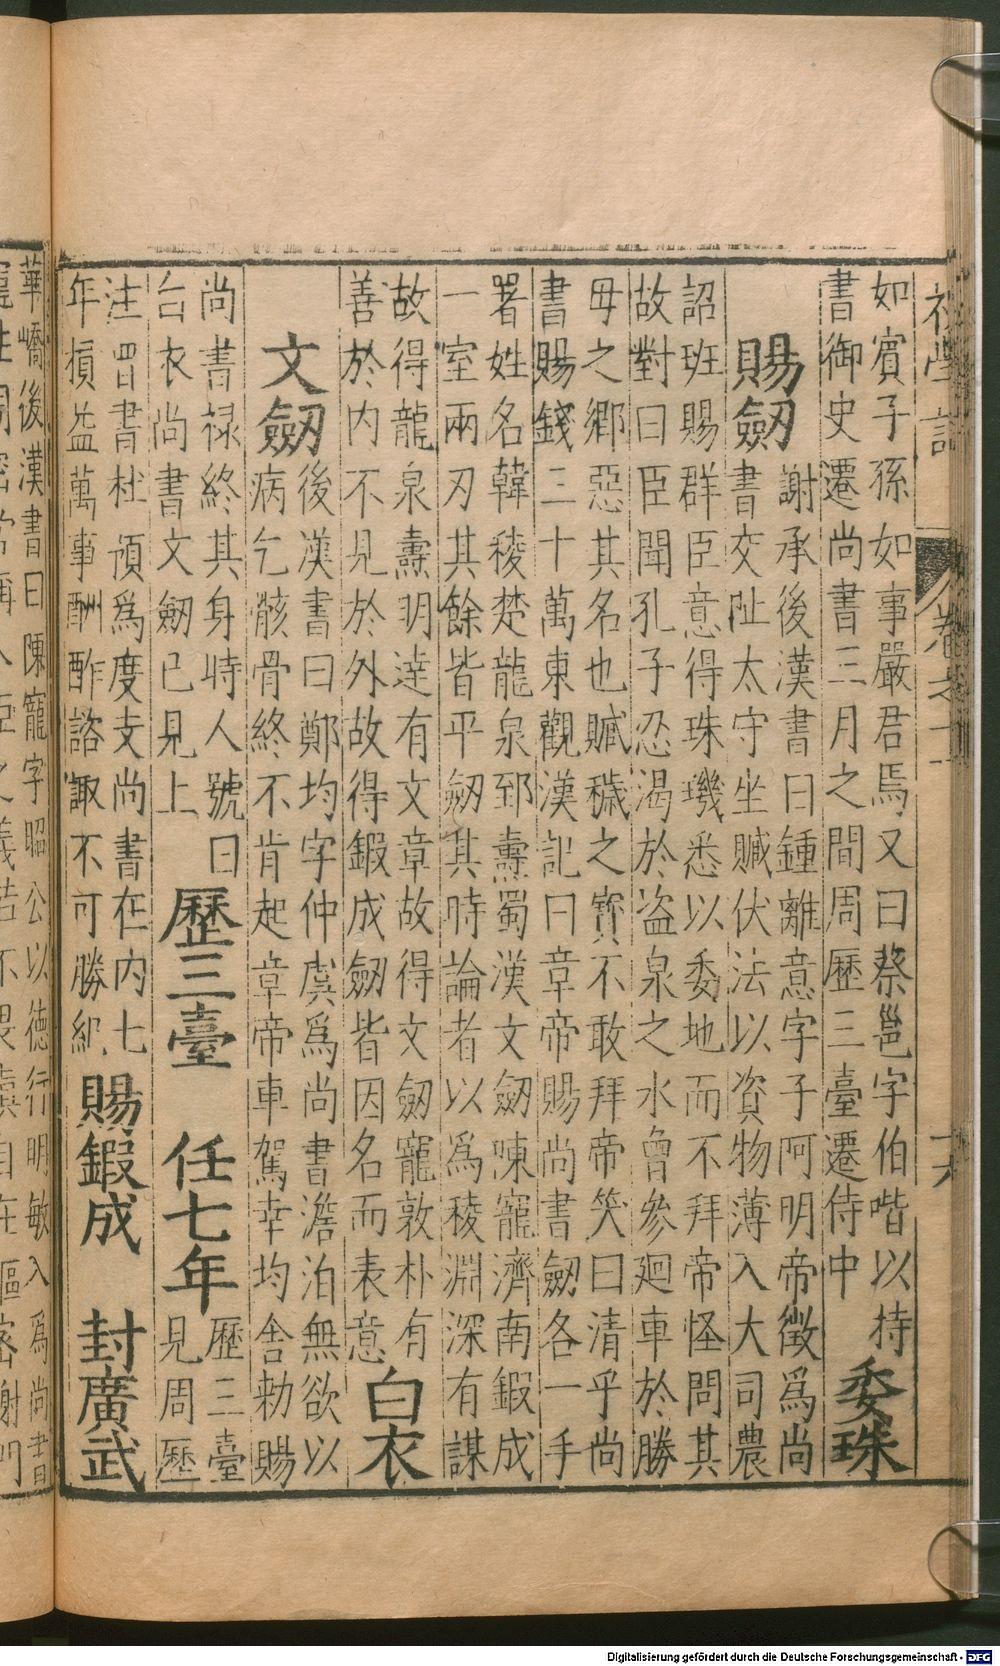 初學記
卷之十一
十六
如賓子孫如事嚴君焉又曰蔡邕字伯喈以持
書御史遷尚書三月之間周歷三臺遷侍中
委珠
賜劒
謝承後漢書曰鍾離意字子阿明帝徵爲尚
書交阯太守坐贓伏法以資物薄入大司農
詔班賜群臣意得珠璣悉以委地而不拜帝怪問其
故對曰臣聞孔子忍渴於盜泉之水曾參廻車於勝
毋之鄉惡其名也贓穢之寳不敢拜帝笑曰清乎尚
書賜錢三十萬東觀漢記曰章帝賜尚書劒各一手
署姓名韓稜楚龍泉郅壽蜀漢文劒陳寵濟南鍛成
一室兩刃其餘皆平劒其時論者以爲稜淵深有謀
故得龍泉壽明達有文章故得文劒寵敦朴有
善於内不見於外故得鍛成劒皆因名而表意
白衣
文劒
後漢書曰鄭均字仲虞爲尚書澹泊無欲以
病乞骸骨終不肯起章帝車駕幸均舍勅賜
尚書禄終其身時人號曰
白衣尚書文劒已見上
歷三臺
任七年
歷三臺
見周歷
注四書杜預爲度支尚書在内七
年損益萬事酬酢諮諏不可勝紀
賜鍛成
封廣武
華嶠後漢書曰陳寵字昭公以德行明敏入爲尚書
Digitalisierung gefördert durch die Deutsche Forschungsgemeinschaft - DFG